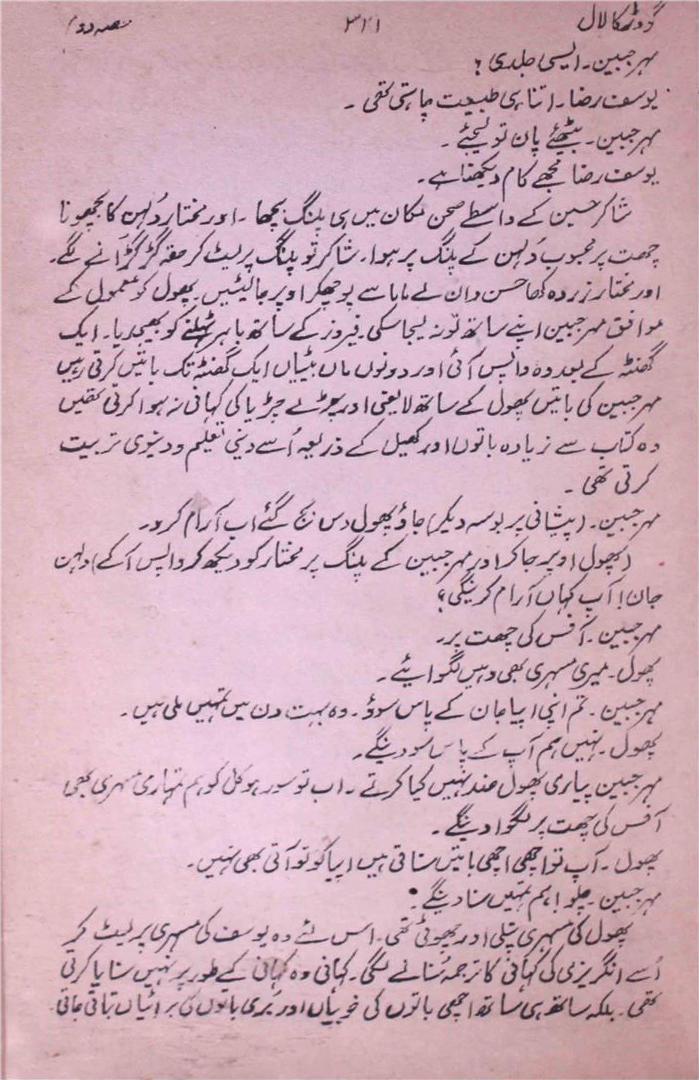 گودڑ کا لال ۳۴۱ حصہ دوم
مہر جبین۔ ایسی جلدی؟
یوسف رضا۔ اتنا ہی طبیعت چاہتی تھی۔
مہر جبین۔ بیٹھئے پان تو لیجئے۔
یوسف رضا مجھے کام دیکھنا ہے۔
شاکر حسین کے واسطے صحن مکان میں ہی پلنگ بچھا۔ اور مختار دُلہن کا بچھونا
چھت پر محبوب دُلہن کے پلنگ پر ہوا۔ شاکر تو پلنگ پر لیٹ کر حقہ گڑگڑانے لگے۔
اور مختار زردہ کھا حسن دان لے ماما سے پوچھکر اوپر جا لیٹیں۔ پھول کو معمول کے
موافق مہر جبین اپنے ساتھ تو نہ لیجا سکی۔ فیروز کے ساتھ باہر ٹہلنے کو بھیجدیا۔ ایک
گھنٹہ کے بعد وہ واپس آئی اور دونوں ماں بیٹیاں ایک گھنٹہ تک باتیں کرتی رہیں
مہر جبین کی باتیں پھول کے ساتھ لایعنی اور چڑے چڑیا کی کہانی نہ ہوا کرتی تھیں
وہ کتاب سے زیادہ باتوں اور کھیل کے ذریعہ اُسے دینی تعلیم و دنیوی تربیت
کرتی تھی۔
مہر جبین۔ (پیشانی پر بوسہ دیکر) جاؤ پھول دس بج گئے اب آرام کرو۔
(پھول اوپر جا کر اور مہر جبین کے پلنگ پر مختار کو دیکھ کر واپس آ کے) دلہن
جان! آپ کہاں آرام کرینگی؟
مہر جبین۔ آفس کی چھت پر۔
پھول۔ میری مسہری بھی وہیں لگوائیے۔
مہر جبین۔ تم اپنی اپیا جان کے پاس سوؤ۔ وہ بہت دن میں تمہیں ملی ہیں۔
پھول۔ نہیں ہم آپ کے پاس سووینگے۔
مہر جبین پیاری پھول ضد نہیں کیا کرتے۔ اب تو سو رہو کل کو ہم تمہاری مسہری بھی
آفس کی چھت پر لگوا دینگے۔
پھول۔ آپ تو اچھی اچھی باتیں سناتی ہیں اپیا کو تو آتی بھی نہیں۔
مہر جبین۔ چلو ہم تمہیں سنا دینگے۔
پھول کی مسہری پتلی اور چھوٹی تھی۔ اس لئے وہ یوسف کی مسہری پر لیٹ کر
اُسے انگریزی کی کہانی کا ترجمہ سُنانے لگی۔ کہانی وہ کہانی کے طور پر نہیں سنایا کرتی
تھی۔ بلکہ ساتھ ہی ساتھ اچھی باتوں کی خوبیاں اور بُری باتوں کی برائیاں بتاتی جاتی